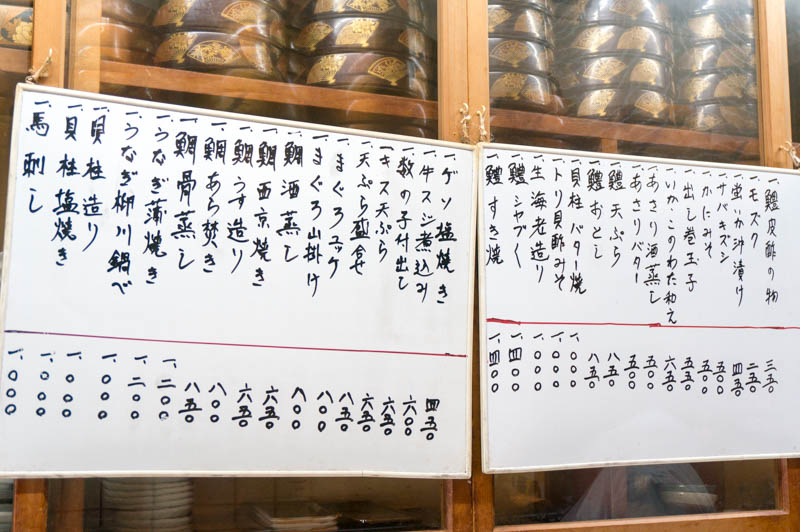 一、鱧皮酢の物 三五〇
一、モズク 二五〇
一、蛍いか汁漬け 四五〇
一、サバキズシ 五五〇
一、かにみそ 五〇〇
一、出し巻玉子 五五〇
一、いかこのわた和え 六五〇
一、あさり酒蒸し 五〇〇
一、あさりバター 五〇〇
一、鱧天ぷら 八五〇
一、鱧おとし 八五〇
一、貝柱バター焼 一、〇〇〇
一、トリ貝酢みそ 一、〇〇〇
一、生海老造り 一、〇〇〇
一、鱧シャブく 一、四〇〇
一、鱧すき焼 一、四〇〇
一、ゲソ塩焼き 四五〇
一、牛スジ煮込み 六〇〇
一、数の子付出し 六五〇
一、キス天ぷら 六五〇
一、天ぷら盛合せ 八五〇
一、まぐろユッケ 八〇〇
一、まぐろ山掛け 八〇〇
一、鯛酒蒸し 六五〇
一、鯛西京焼き 六五〇
一、鯛うす造り 八〇〇
一、鯛あら焚き 八五〇
一、鯛骨蒸し 一、二〇〇
一、うなぎ蒲焼き 一、二〇〇
一、うなぎ柳川鍋べ 一、〇〇〇
一、貝柱造り 一、〇〇〇
一、貝柱塩焼き 一、〇〇〇
一、馬刺し 一、〇〇〇